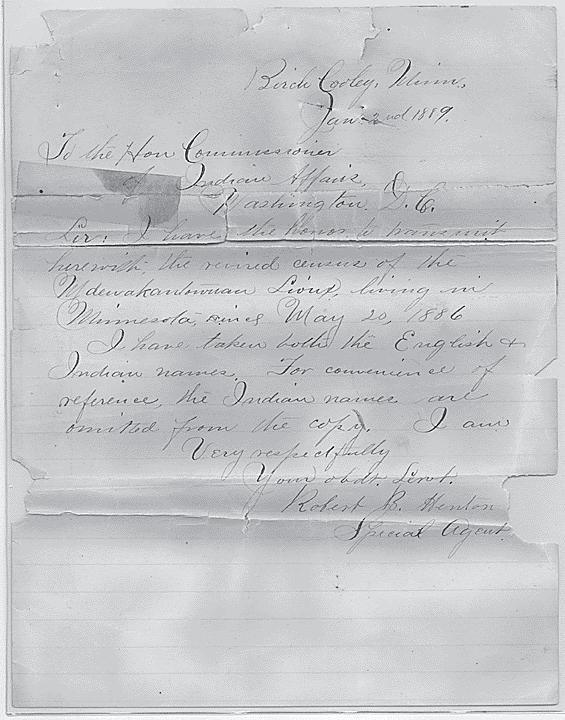 Birch Cooley, Minn,
Jan. 2nd 1889.
To the Hon Commissioner
of Indian Affairs,
Washington D.C.
Sir: I have the honor to transmit
herewith, the revised census of the
Mdewakantonwan Sioux, living in
Minnesota, since May 20, 1886
I have taken both the English &
Indian names. For convenience of
reference, the Indian names are
omitted from the copy. I am
Very respectfully
Your obdt. Servt.
Robert B. Henton
Special Agent.